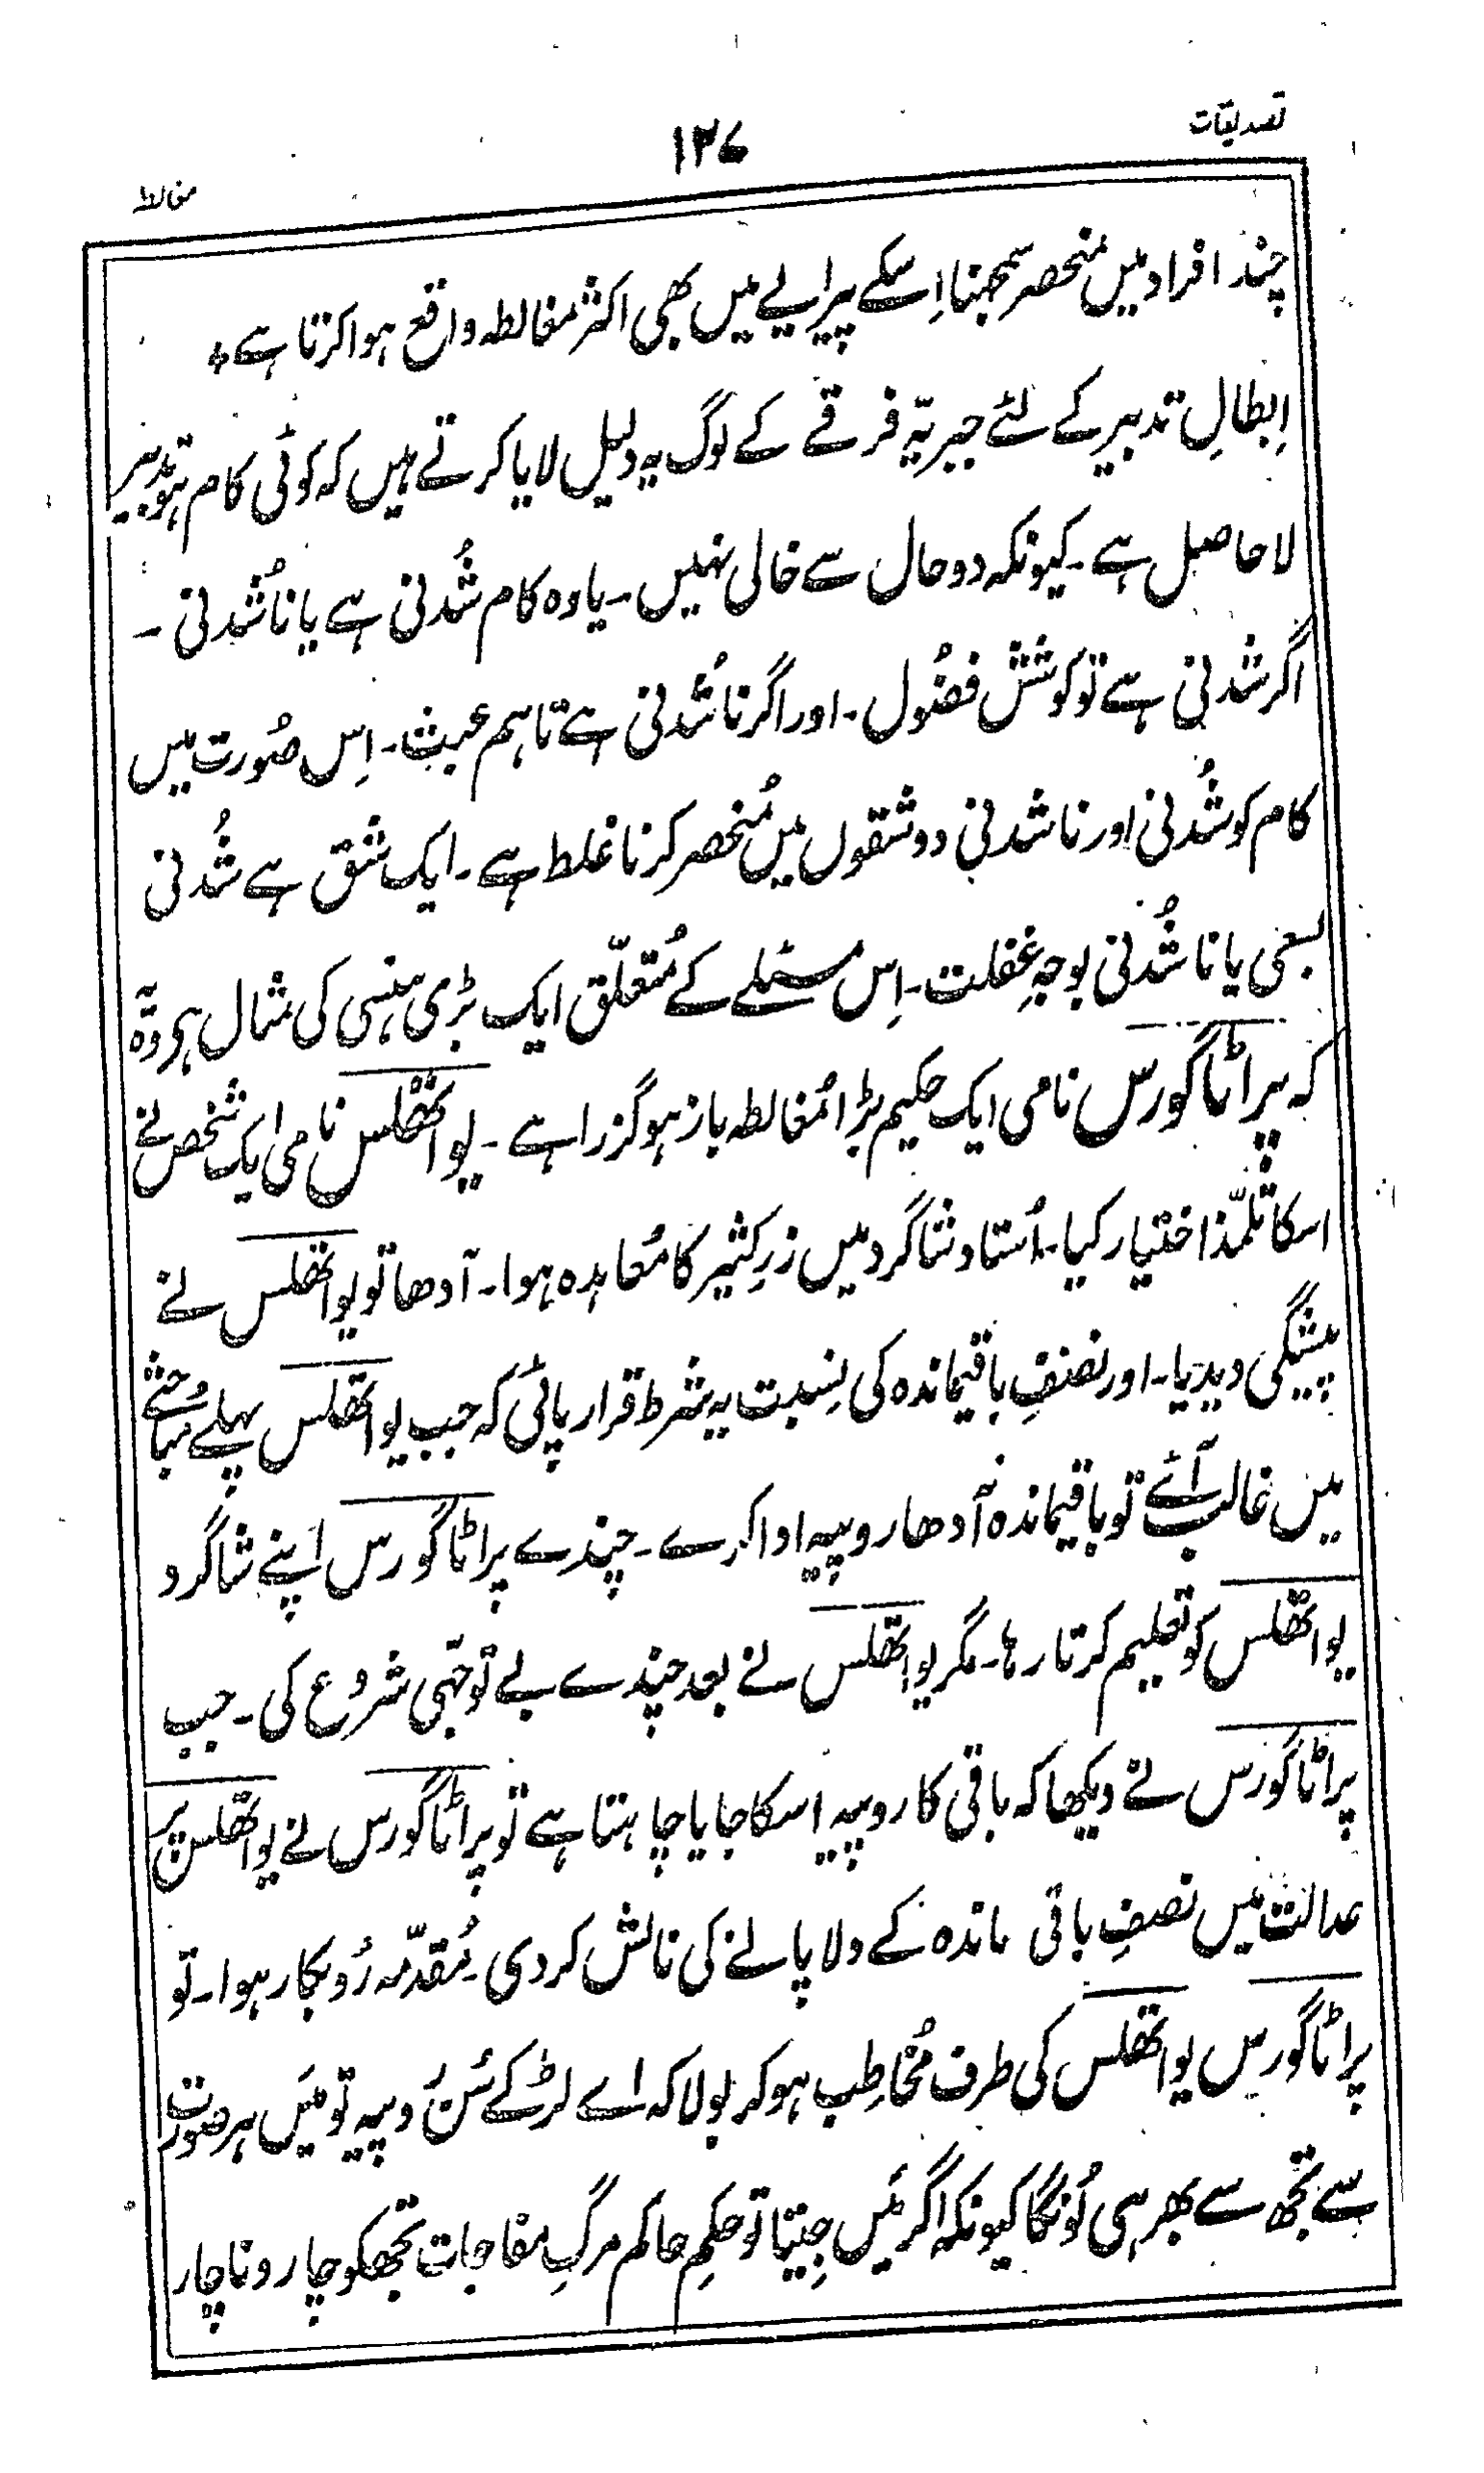 تصدیقات
۱۳۷
مغالطہ
چند افراد میں منحصر سمجھنا اِسکے پیرایے میں بھی اکثر مغالطہ واقع ہوا کرتا ہے ۔
اِبطالِ تدبیر کے لئے جبریّہ فرقے کے لوگ یہ دلیل لایا کرتے ہیں کہ کوئی کام ہو تدبیر
لاحاصل ہے ۔ کیونکہ دو حال سے خالی نہیں ۔ یا وہ کام شُدنی ہے یا ناشُدنی ۔
اگر شدنی ہے تو کوشش فضُول ۔ اور اگر ناشُدنی ہے تاہم عبث ۔ اِس صُورت میں
کام کو شُدنی اور ناشدنی دو شقوں میں مُنحصر کرنا غلط ہے ۔ ایک شق ہے شُدنی
بسعی یا ناشُدنی بوجہِ غفلت ۔ اِس مسئلے کے مُتعلّق ایک بڑی ہنسی کی مثال ہی وہ یہ
کہ پراٹاگورس نامی ایک حکیم بڑا مُغالطہ باز ہو گزرا ہے ۔ یواتھلس نامی ایک شخص نے
اسکا تلمّذ اختیار کیا ۔ اُستاد شاگرد میں زرِ کثیر کا مُعاہدہ ہوا ۔ آدھا تو یواتھلس نے
پیشگی دیدیا ۔ اور نصفِ باقیماندہ کی نِسبت یہ شرط قرار پائی کہ جب یواتھلس پہلے مُباحثے
میں غالب آئے تو باقیماندہ آدھا روپیہ ادا کرے ۔ چندے پراٹاگورس اپنے شاگرد
یواتھلس کو تعلیم کرتا رہا ۔ مگر یواتھلس نے بعد چندے بے توجّہی شروع کی ۔ جب
پراٹاگورس نے دیکھا کہ باقی کا روپیہ اسکا جایا چاہتا ہے تو پراٹاگورس نے یواتھلس پر
عدالت میں نصفِ باقی ماندہ کے دلا پانے کی نالش کر دی ۔ مُقدّمہ رُوبکار ہوا ۔ تو
پراٹاگورس یواتھلس کی طرف مُخاطِب ہو کر بولا کہ اے لڑکے سُن روپیہ تو مَیں ہر صورت
سے تجھ سے بھر ہی لُونگا کیونکہ اگر مَیں جِیتا تو حکمِ حاکم مرگِ مفاجات تجھکو چار و ناچار